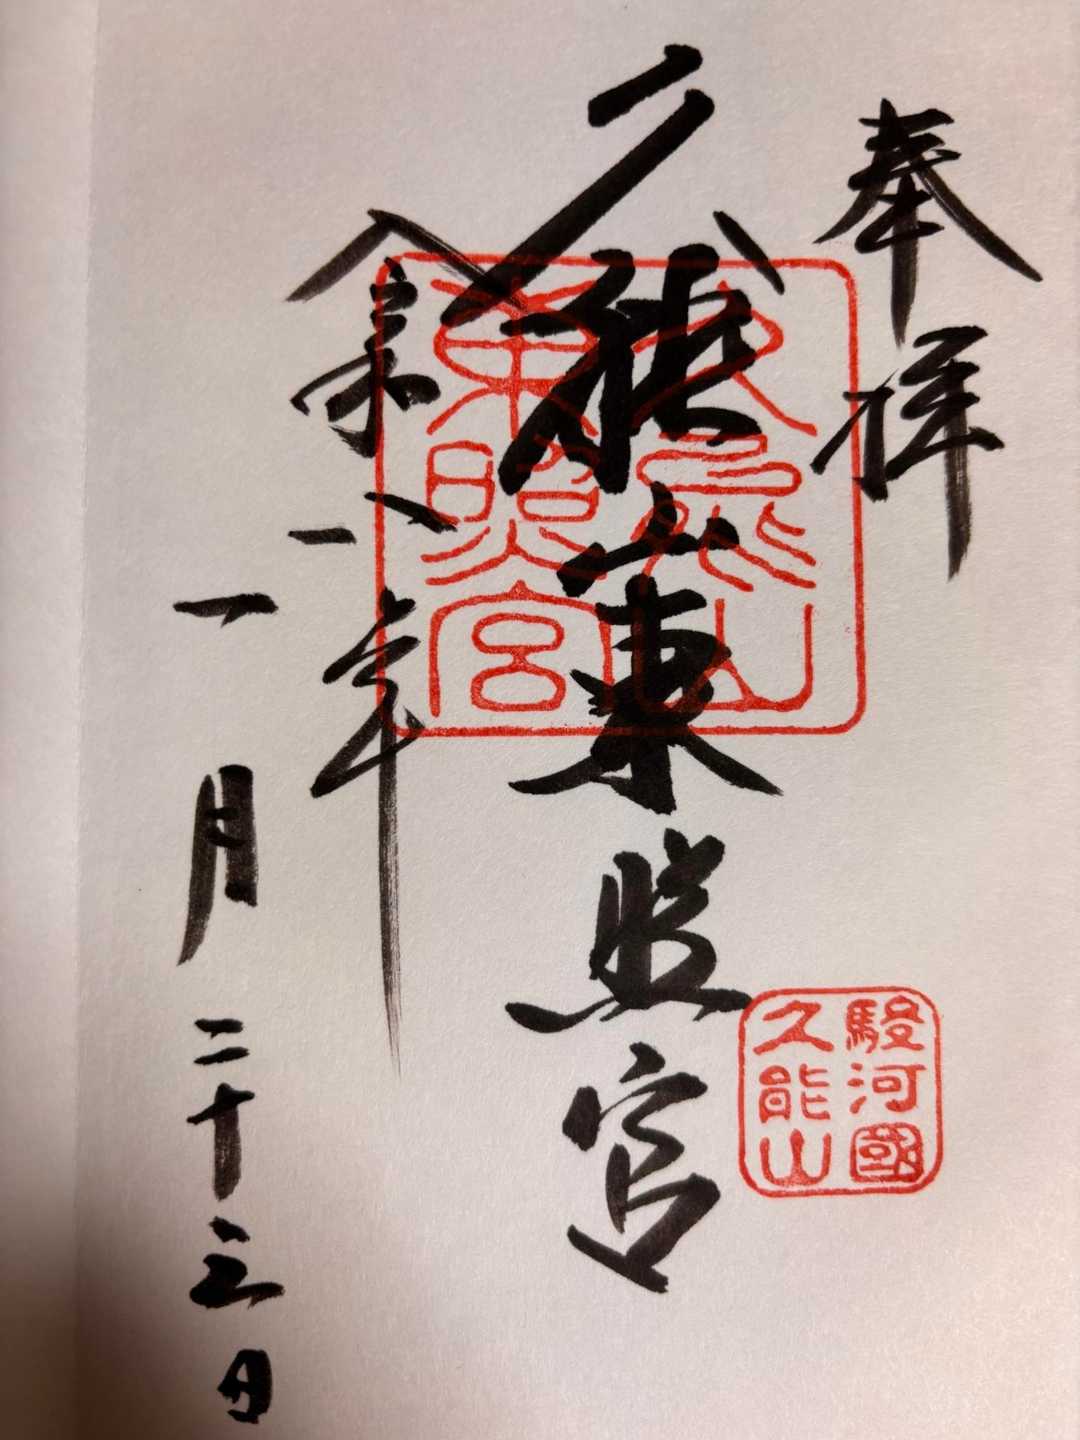 奉拝
久能山東照宮
久能山
東照宮
駿河國
久能山
令和八年
一月二十三日